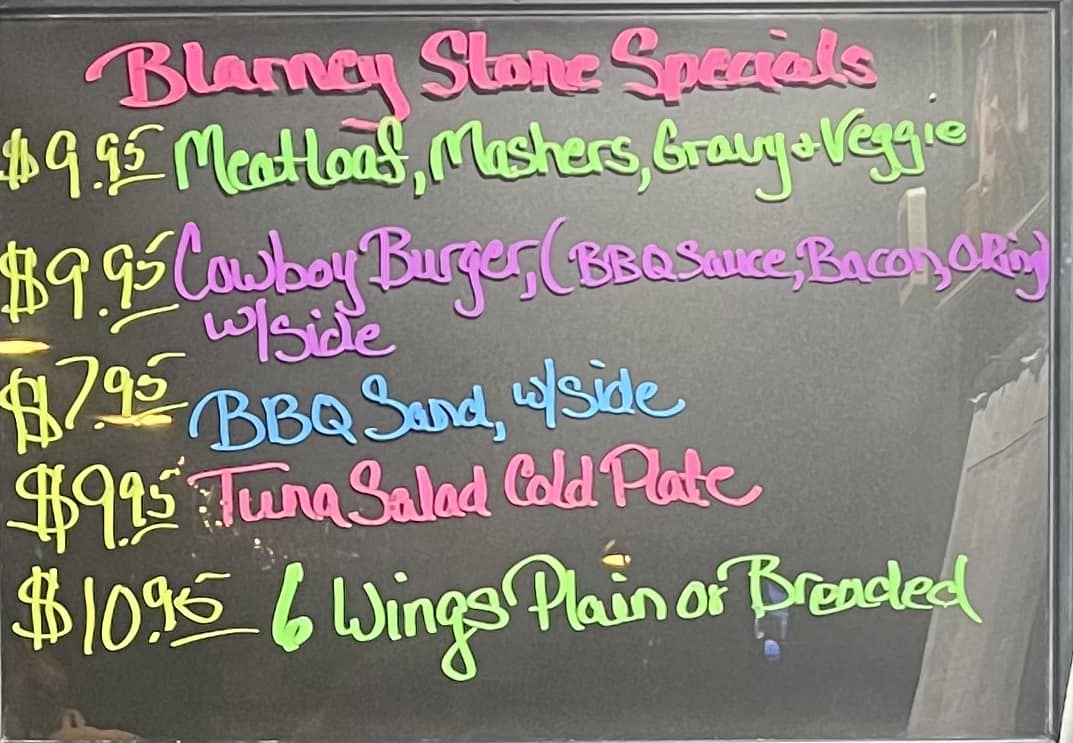 Blarney Stone Specials
$9.95 Meatloaf, Mashers, Gravy + Veggie
$9.95 Cowboy Burger, (BBQ Sauce, Bacon, O Ring)
w/side
$7.95 BBQ Sand, w/side
$9.95 Tuna Salad Cold Plate
$10.95 6 Wings Plain or Breaded